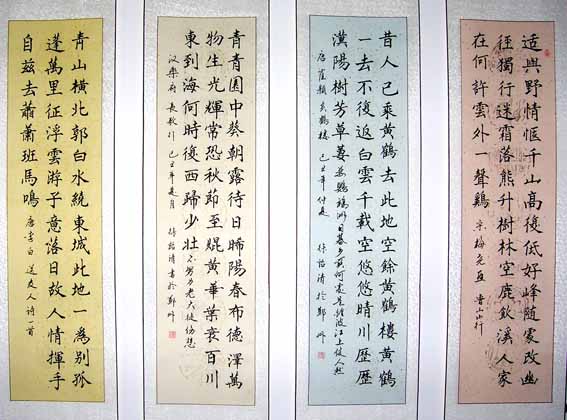 适與野情愜千山高復低好峰随處改幽
徑獨行迷霜落熊升樹林空鹿飲溪人家
在何許雲外一聲鷄 宋梅堯臣 魯山山行
昔人已乘黄鶴去此地空餘黄鶴樓黄鶴
一去不復返白雲千載空悠悠晴川歷歷
漢陽樹芳草萋萋鸚鵡洲日暮鄉關何處是煙波江上使人愁
唐崔顥黄鶴樓 己丑年仲夏 於鄭州
青青園中葵朝露待日晞陽春布德澤萬
物生光輝常恐秋節至焜黄華葉衰百川
東到海何時復西歸少壯不努力老大徒傷悲
汉樂府 長歌行 己丑年夏月 書於鄭州
青山橫北郭白水繞東城此地一為别孤
蓬萬里征浮雲游子意落日故人情揮手
自兹去蕭蕭班馬鳴 唐李白 送友人詩一首